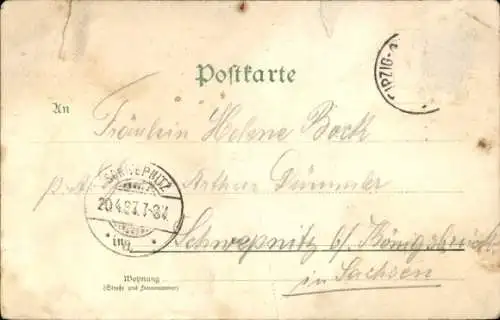 Postkarte
IPZIG-
An
Fräulein Helene Bock
p. Ad. Arthur Dümmler
SCHWEPNITZ
20.4.97.7-8V.
Schwepnitz b/ Königsbrück
in Sachsen
Wohnung
(Straße und Hausnummer)